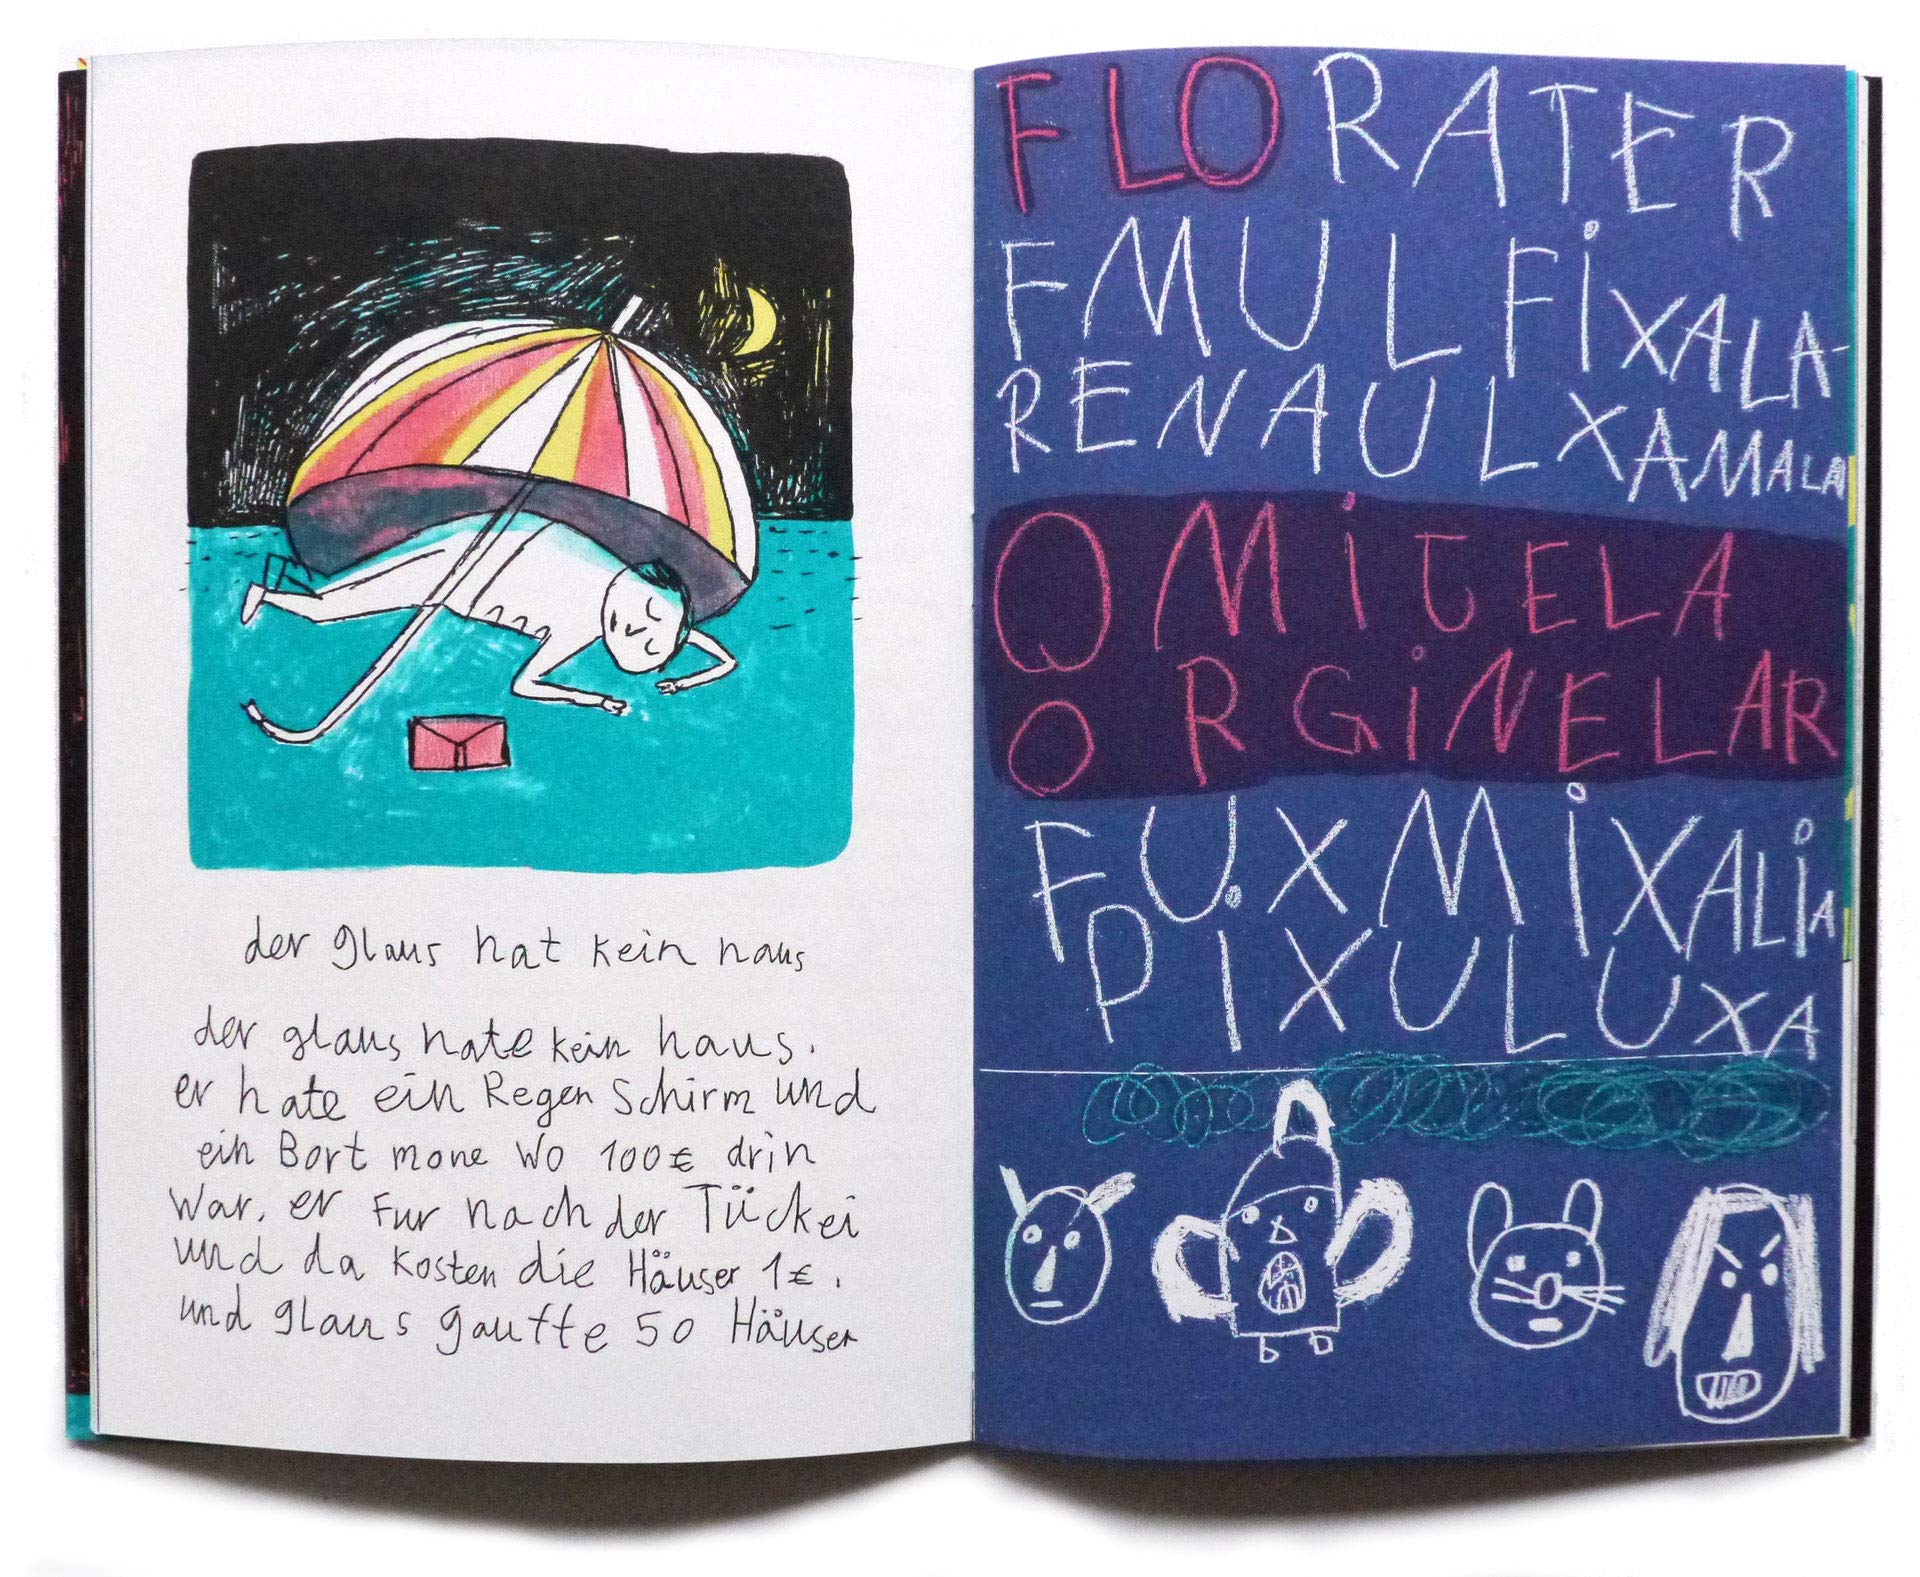 der glaus hat kein haus
der glaus hate kein haus.
er hate ein Regen Schirm und
ein Bort mone wo 100€ drin
war. er fur nach der Tückei
und da kosten die Häuser 1€.
und glaus gaufte 50 Häuser
FLORATER
FMULFiXALA-
RENAULXAMALA
QMiTELA
ORGiNELAR
FUXMiXALiA
PIXULUXA